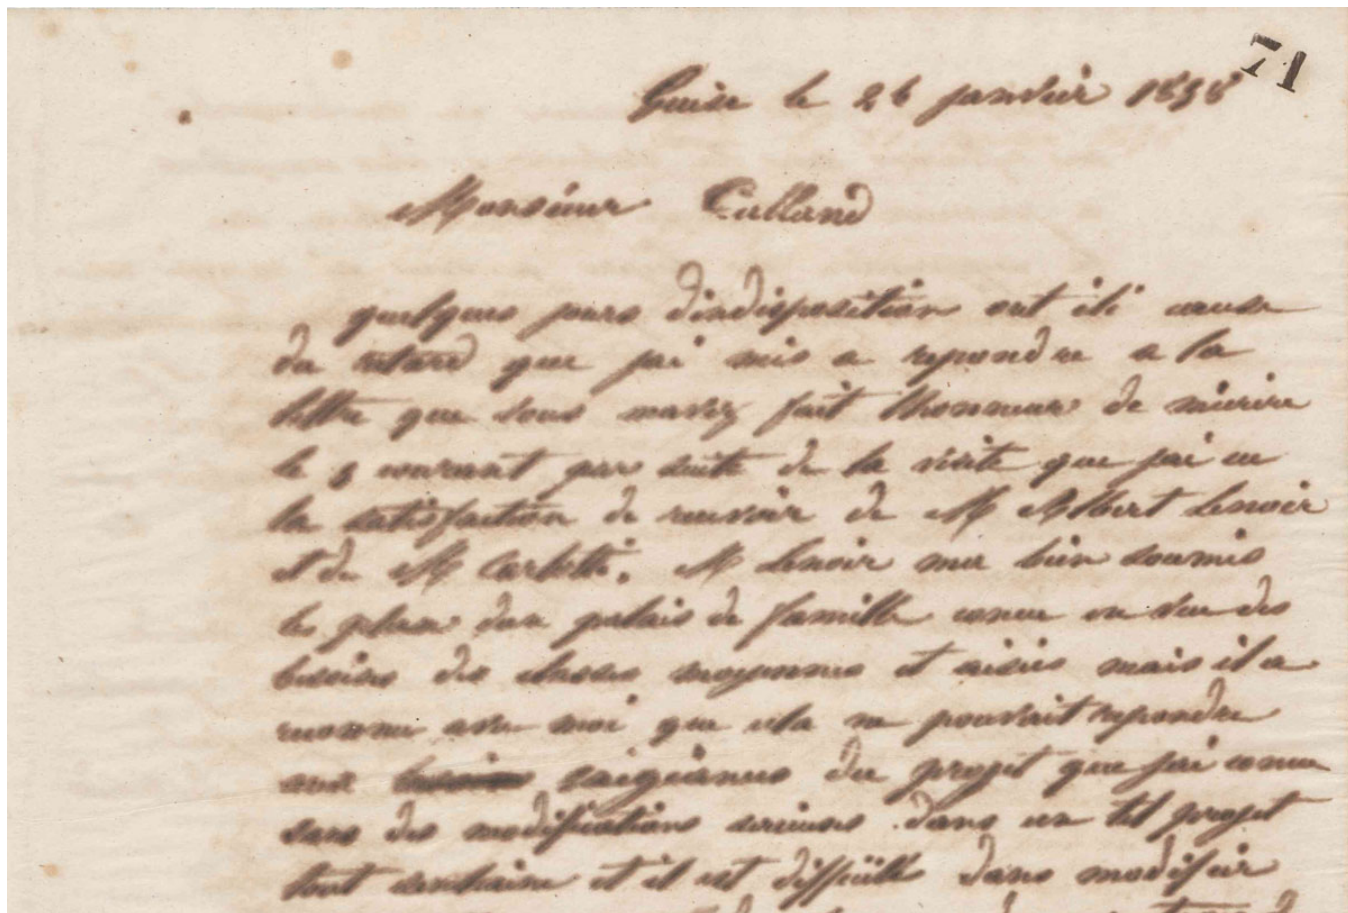 71
Guise le 26 janvier 1858
Monsieur Calland
quelques jours dindisposition ont été cause
du retard que jai mis a repondre a la
lettre que vous mavez fait lhonneur de mécrire
le 5 courant par suite de la visite que jai eu
la satisfaction de recevoir de M Albert Lenoir
et de M Carletti. M Lenoir ma bien soumis
le plan dun palais de famille concu en vue des
besoins des classes moyennes et aisées mais il a
reconnu avec moi que cela ne pouvait repondre
aux exigeances du projet que jai concu
sans des modifications serieuses. dans un tel projet
tout senchaine et il est difficile den modifier